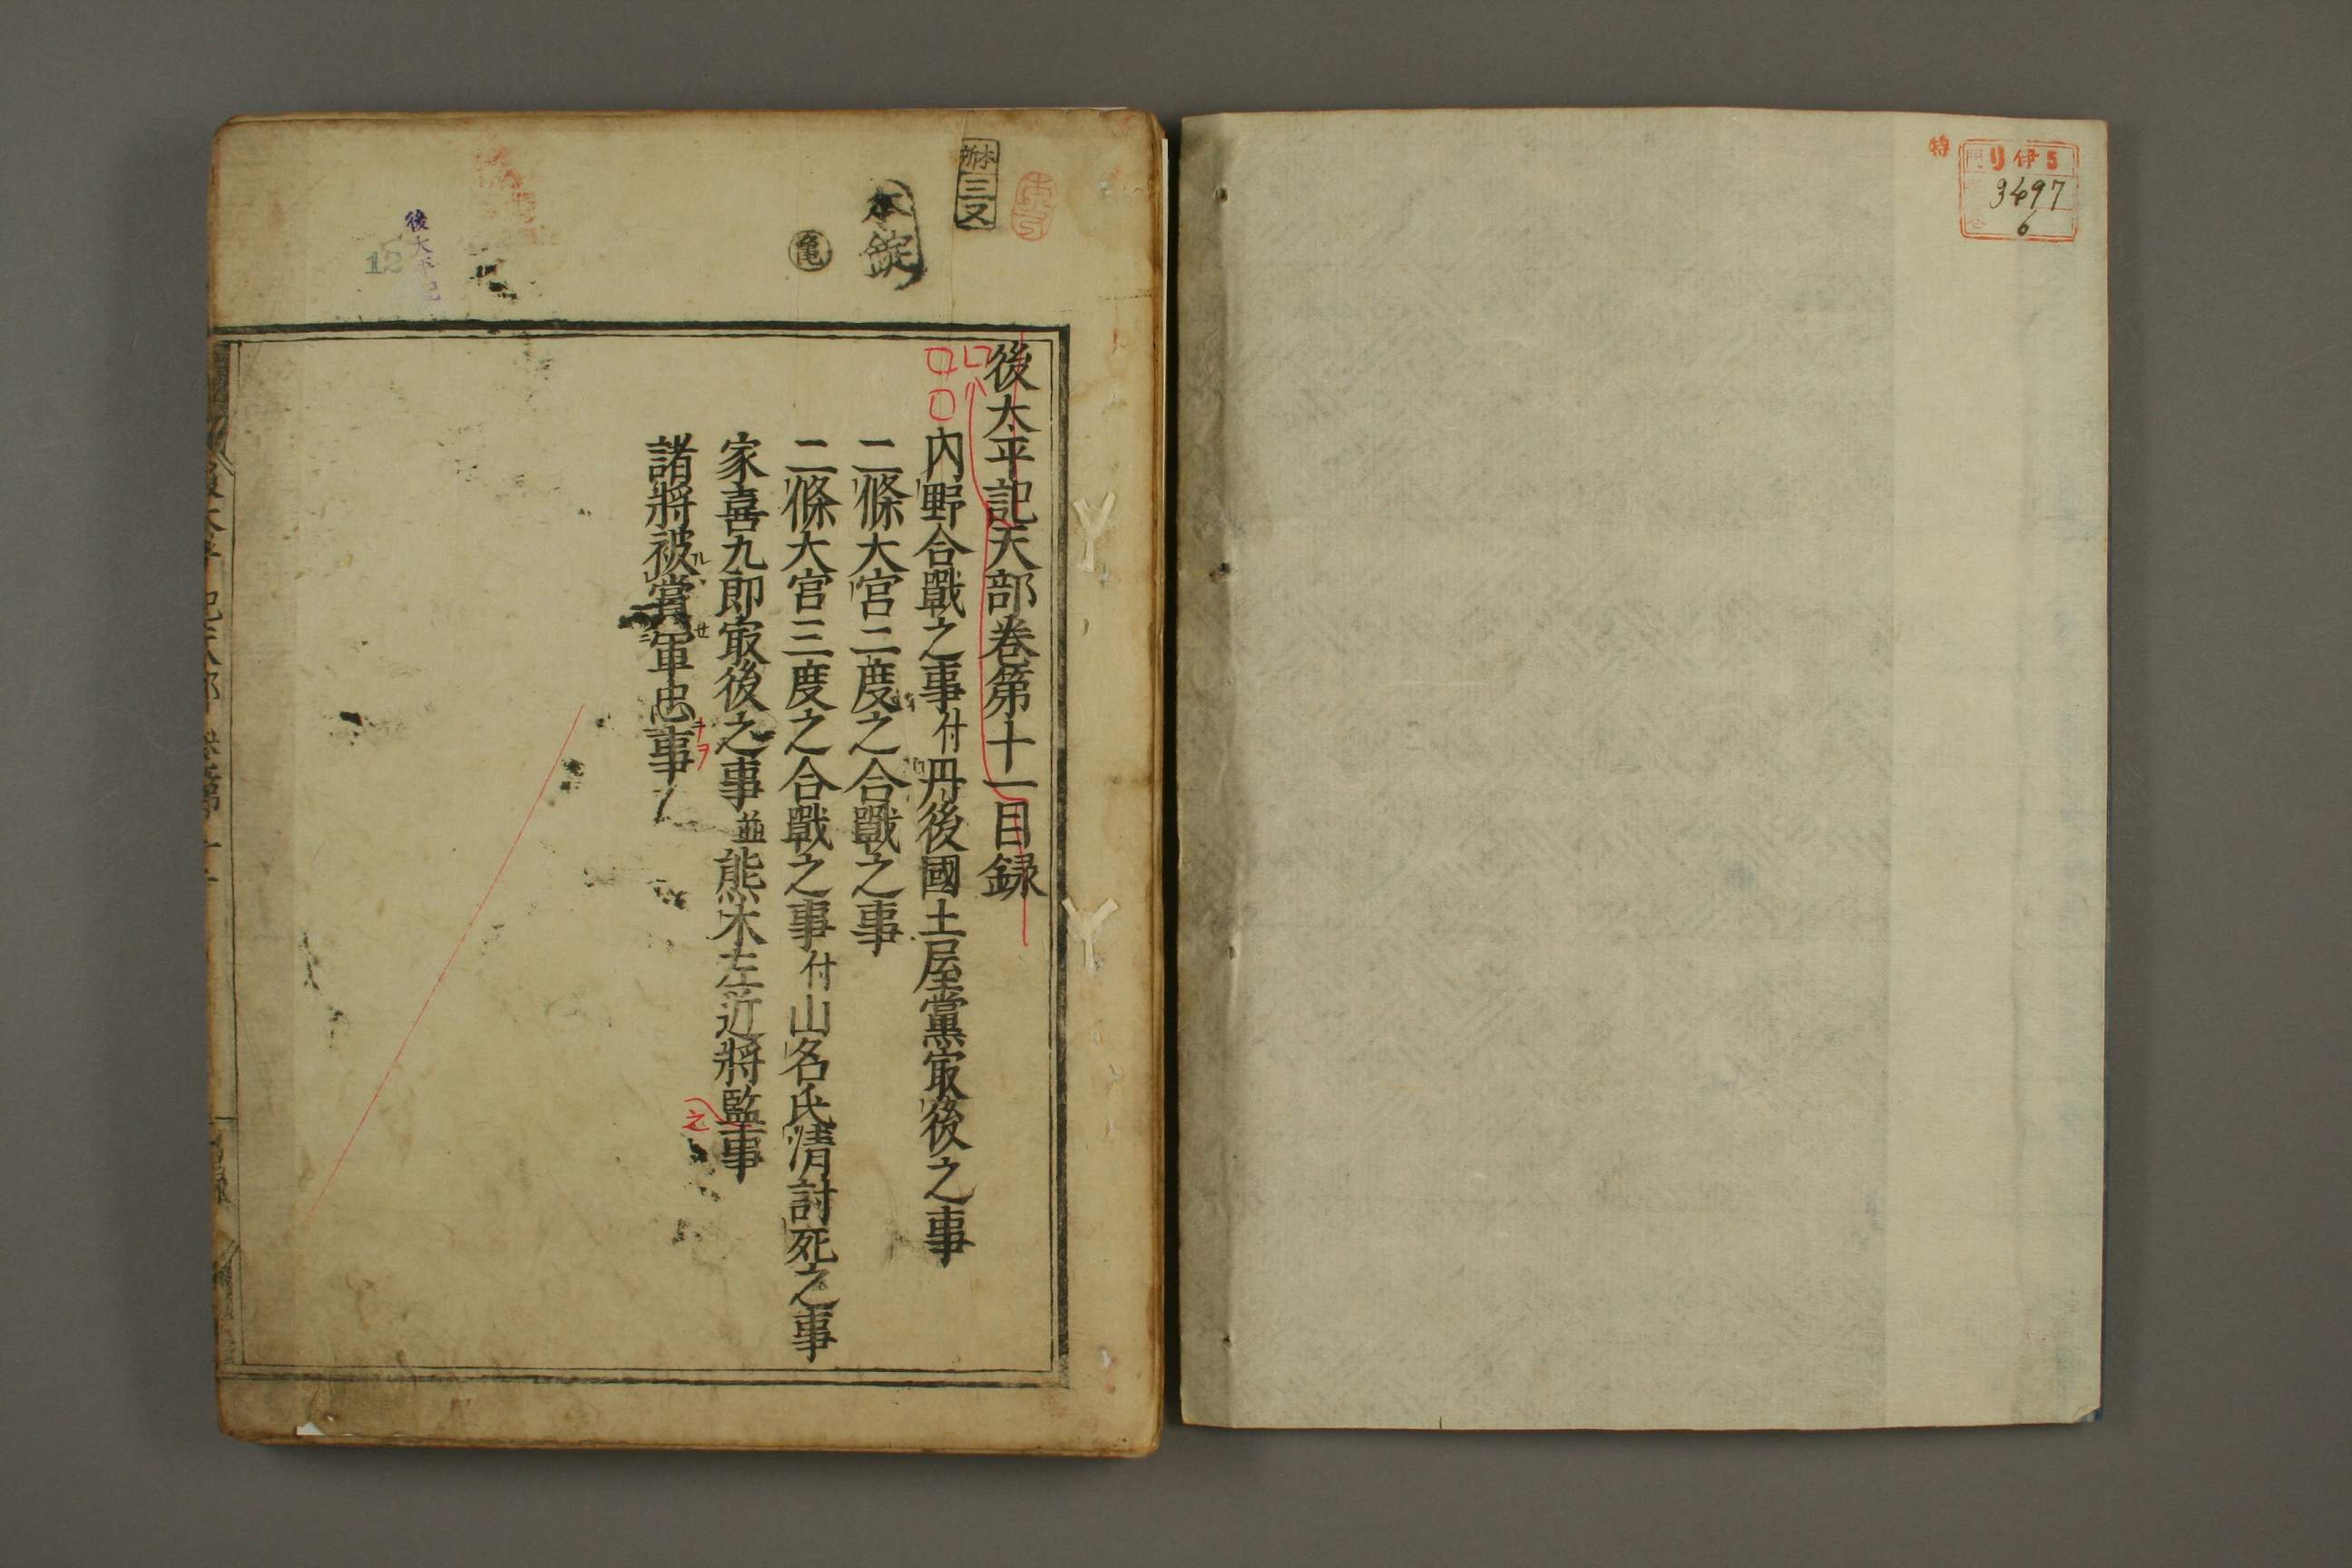 特
門 リ 伊5
3497
6
本所
三又
本錠
亀
後太平記
12
後太平記天部巻第十一目録
内野合戰之事付丹後國土屋黨㝡後之事
二條大宮二度之合戰之事
二條大宮三度之合戰之事付山名氏清討死之事
家喜九郎㝡後之事並熊木左近將監事
之
諸將被ル賞セ軍忠事
ヲ